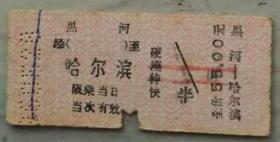 黑 河
经( )至
哈尔滨
限乘当日
当次有效
硬座特快
半
全价55.00元
黑河—哈尔滨